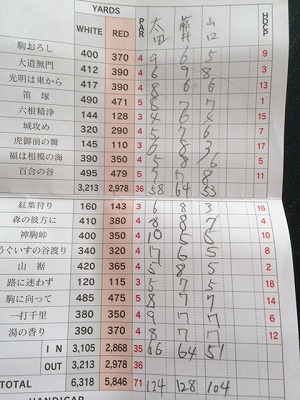 YARDS
WHITE RED PAR 太田 藤井 山口 HOLE
駒おろし 400 370 4 9 6 5 9
大道無門 412 390 4 6 9 8 3
光明は東から 417 390 4 8 6 6 13
笛塚 490 471 5 7 7 1
六根精浄 144 128 3 4 6 4 15
城攻め 320 290 4 5 7 6 7
虎御前の舞 145 110 3 6 8 3 17
福は相模の海 390 350 4 5 8 6 5
百合の谷 495 479 5 7 7 8 11
3,213 2,978 36 58 64 53
紅葉狩り 160 143 3 6 8 3 16
森の彼方に 410 380 4 8 8 7 4
神駒峠 400 350 4 10 5 5 10
うぐいすの谷渡り 340 320 4 7 6 5 8
山裾 420 365 4 5 8 5 2
路に迷わず 120 115 3 5 7 5 18
駒に向って 485 475 5 8 7 7 14
一打千里 380 350 4 9 7 7 6
湯の香り 390 370 4 8 7 7 12
IN 3,105 2,868 35 66 64 51
OUT 3,213 2,978 36
TOTAL 6,318 5,846 71 124 128 104
HANDICAP